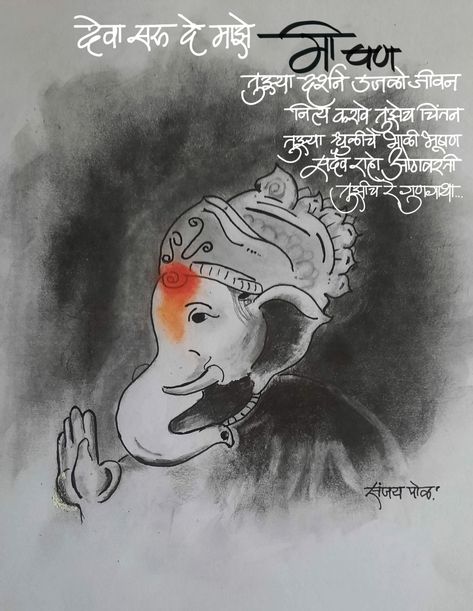 देवा सरू दे माझे मी पण
तुझ्या दर्शने उजळो जीवन
नित्य करावे तुझेच चिंतन
तुझ्या धुळीचे भाळी भूषण
सदैव राहो ओठांवरती
तुझीच रे गुणगाथा...
संजय पोळ.